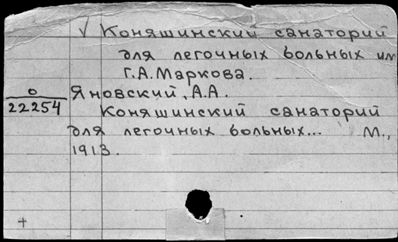 √ Коняшинский санаторий
для легочных больных им
Г.А. Маркова.
О
22254
Яновский, А.А.
Коняшинский санаторий
для легочных больных... М.,
1913.
+